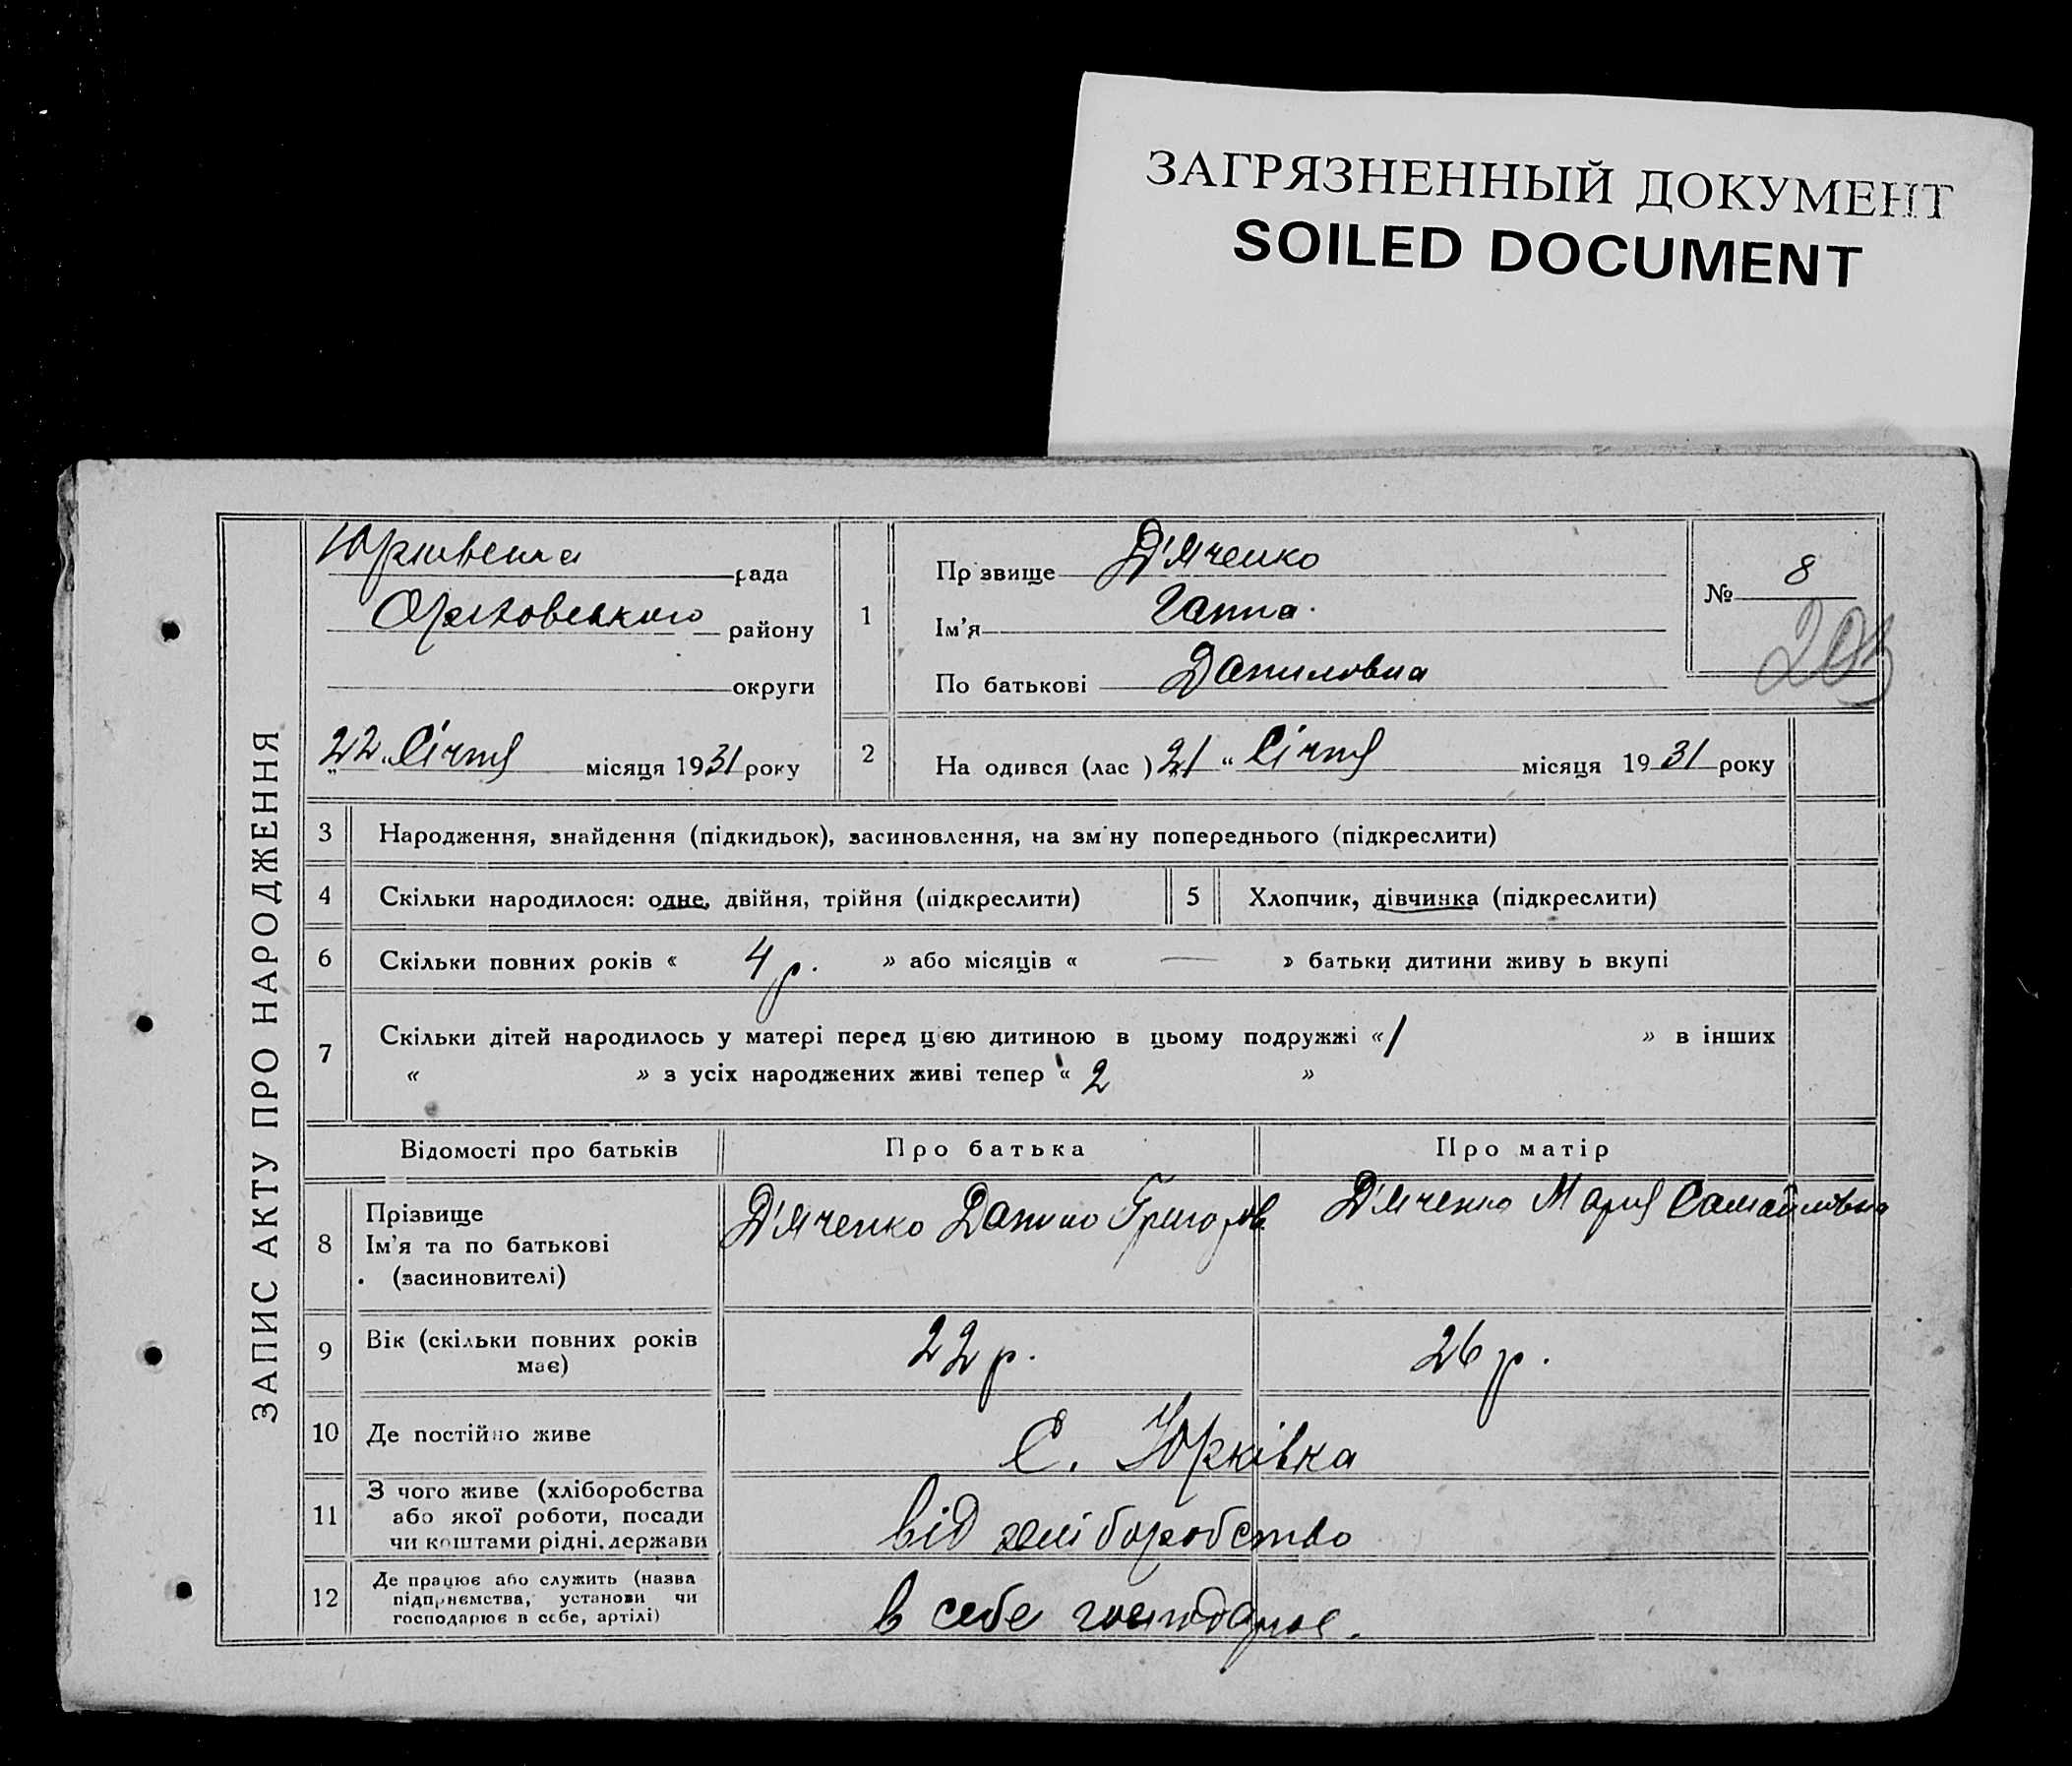 ЗАГРЯЗНЕННЫЙ ДОКУМЕНТ
SOILED DOCUMENT
ЗАПИС АКТУ ПРО НАРОДЖЕННЯ
Юрківська рада
Оріховського району
округи
22 „Січня місяця 1931 року
1
Пр звище Д'яченко
Ім'я Ганна.
По батькові Даниловна
№ 8
203
2 На одився (лас ) 21 “ Січня місяця 1931 року
3 Народження, знайдення (підкидьок), засиновлення, на зм ну попереднього (підкреслити)
4 Скільки народилося: одне, двійня, трійня (підкреслити) 5 Хлопчик, дівчинка (підкреслити)
6 Скільки повних років « 4 р. » або місяців « — » батьки дитини живу ь вкупі
7 Скільки дітей народилось у матері перед цією дитиною в цьому подружжі « 1 » в інших
« » з усіх народжених живі тепер « 2 »
Відомості про батьків Про батька Про матір
8 Прізвище
Ім'я та по батькові
(засиновителі)
Д'яченко Данило Григоров Д'яченко Мария Самайловна
9 Вік (скільки повних років
має)
22 р. 26 р.
10 Де постійно живе С. Юрківка
11 З чого живе (хліборобства
або якої роботи, посади
чи коштами рідні, держави
від хліборобство
12 Де працює або служить (назва
підприємства, установи чи
господарює в себе, артілі)
в себе господарює.